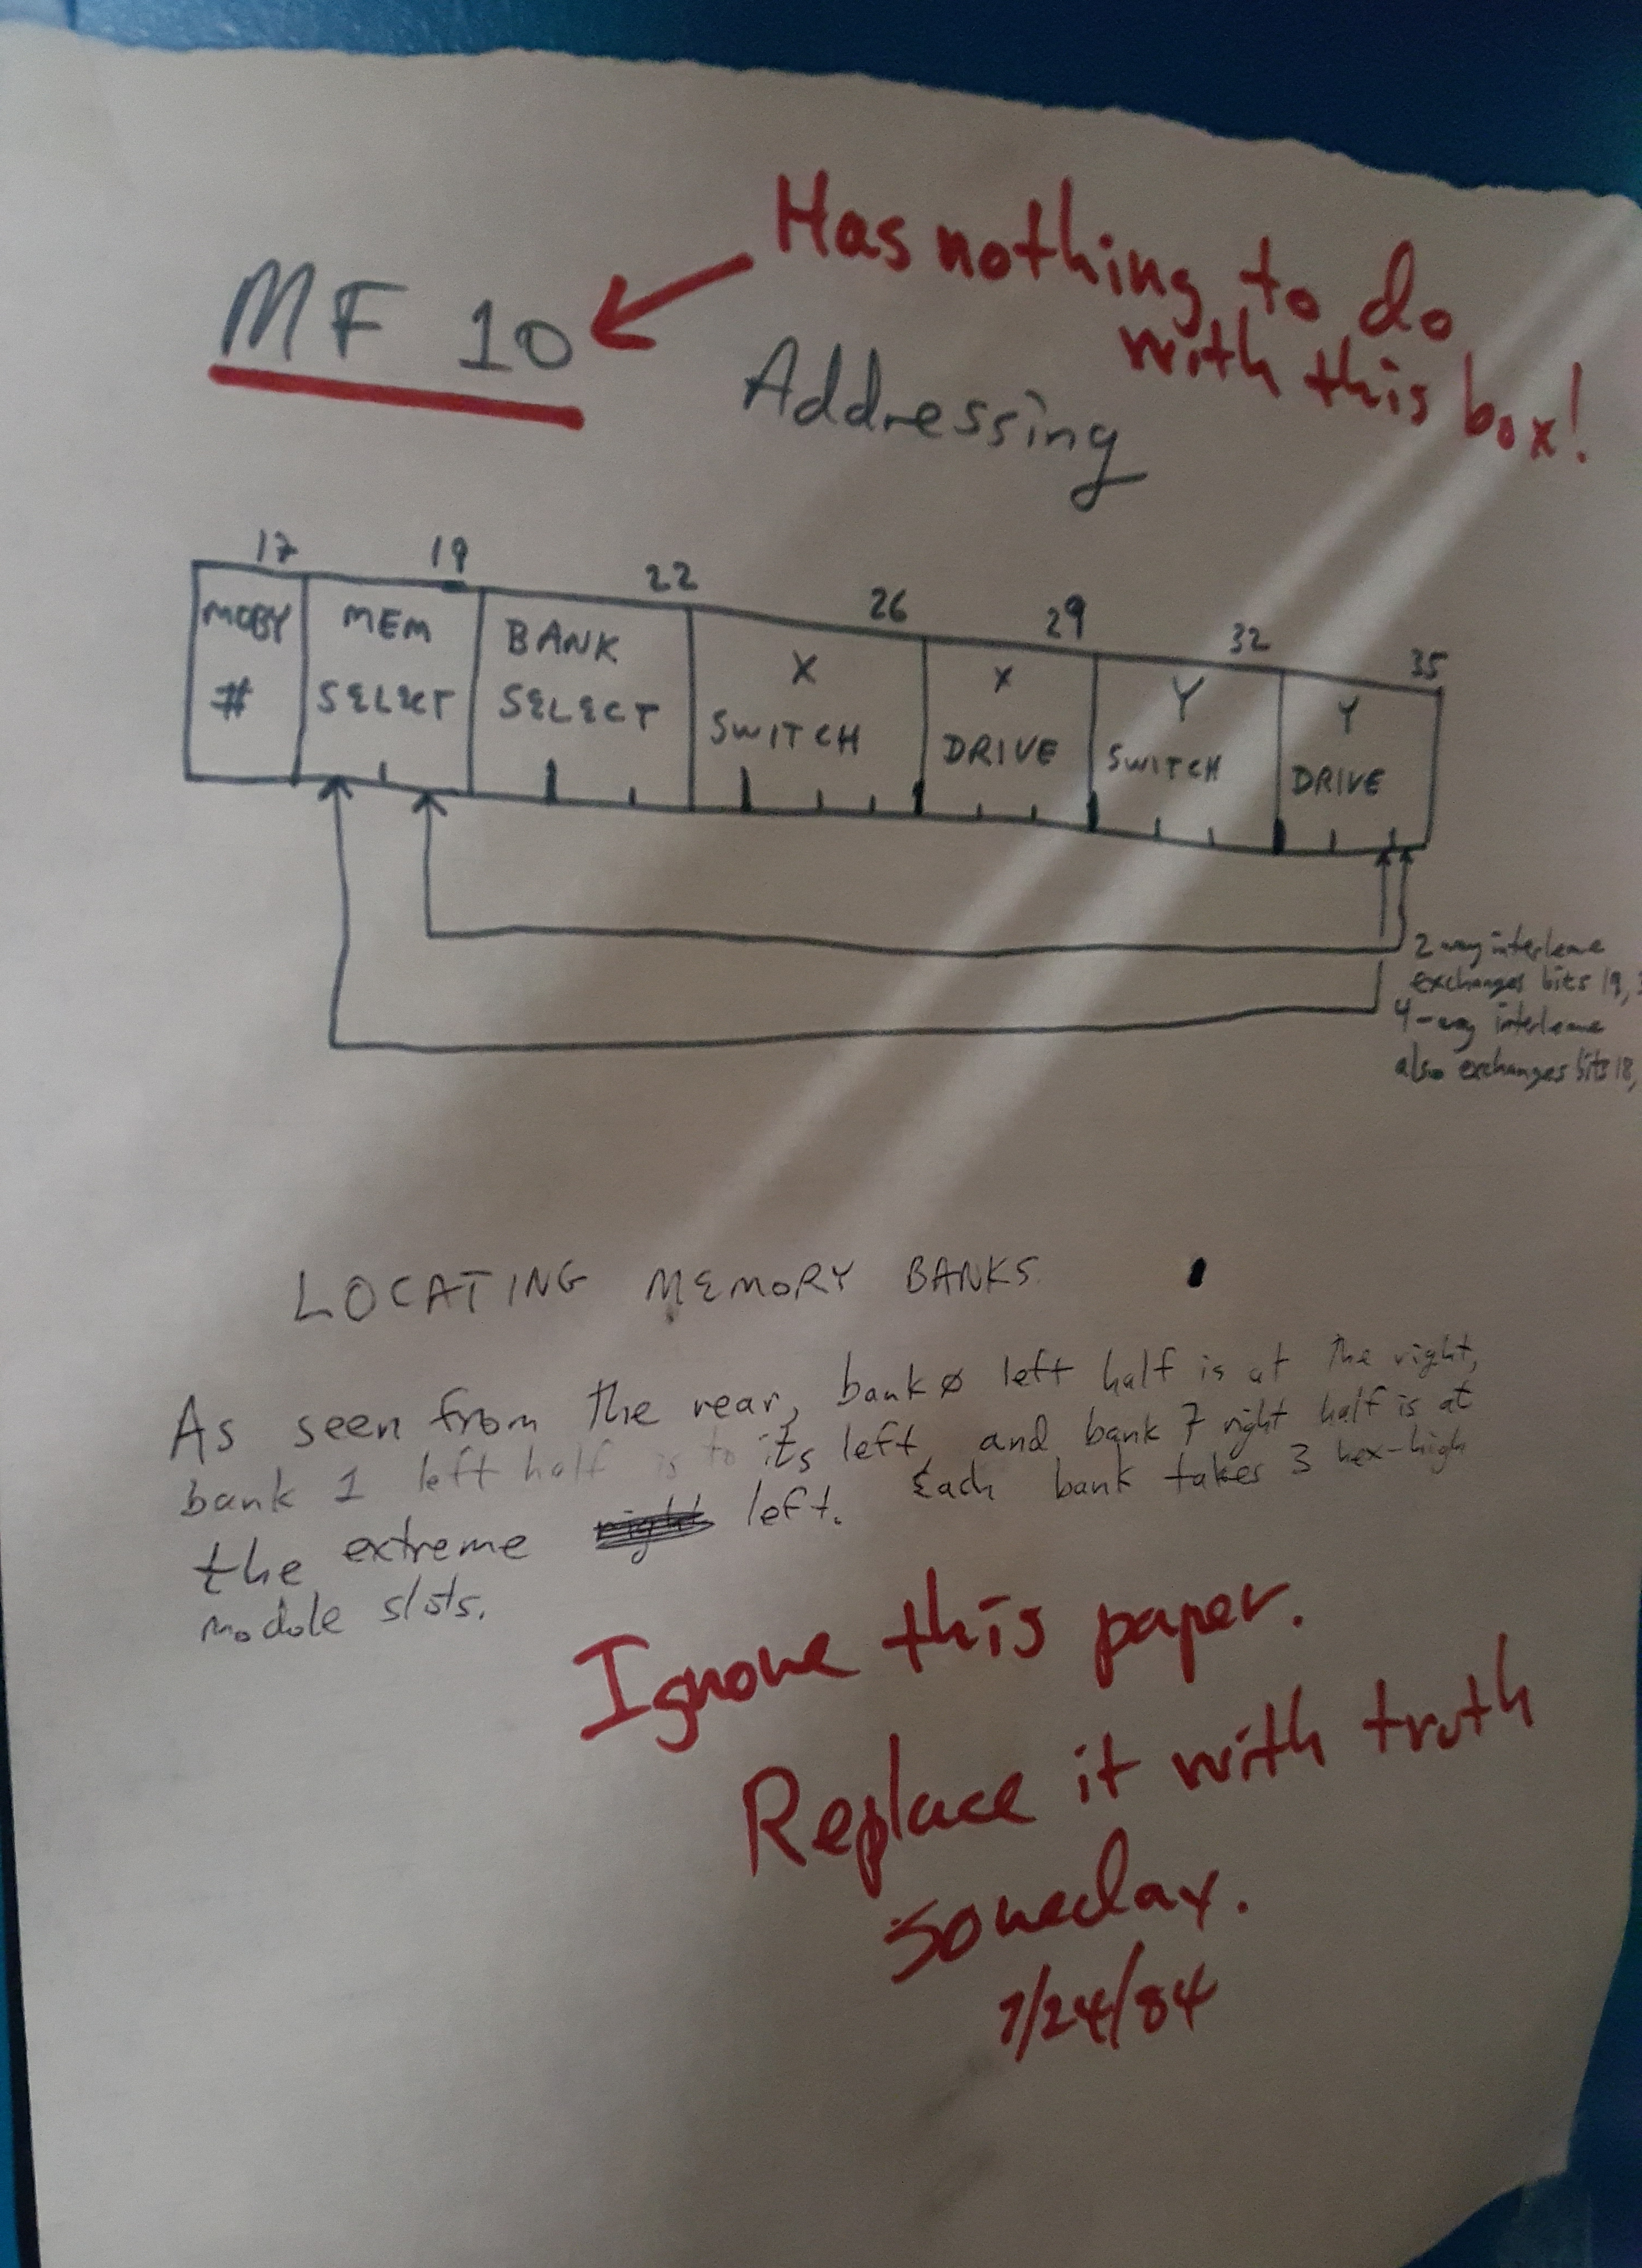 Has nothing to do
with this box!
MF 10
Addressing
17 19 22 26 29 32 35
MOBY
#
MEM
SELECT
BANK
SELECT
X
SWITCH
X
DRIVE
Y
SWITCH
Y
DRIVE
2 way interleave
exchanges bits 19,
4-way interleave
also exchanges bits 18,
LOCATING MEMORY BANKS
As seen from the rear, bank ø left half is at the right,
bank 1 left half is to its left, and bank 7 right half is at
the extreme right left. Each bank takes 3 hex-high
module slots.
Ignore this paper.
Replace it with truth
someday.
7/24/84